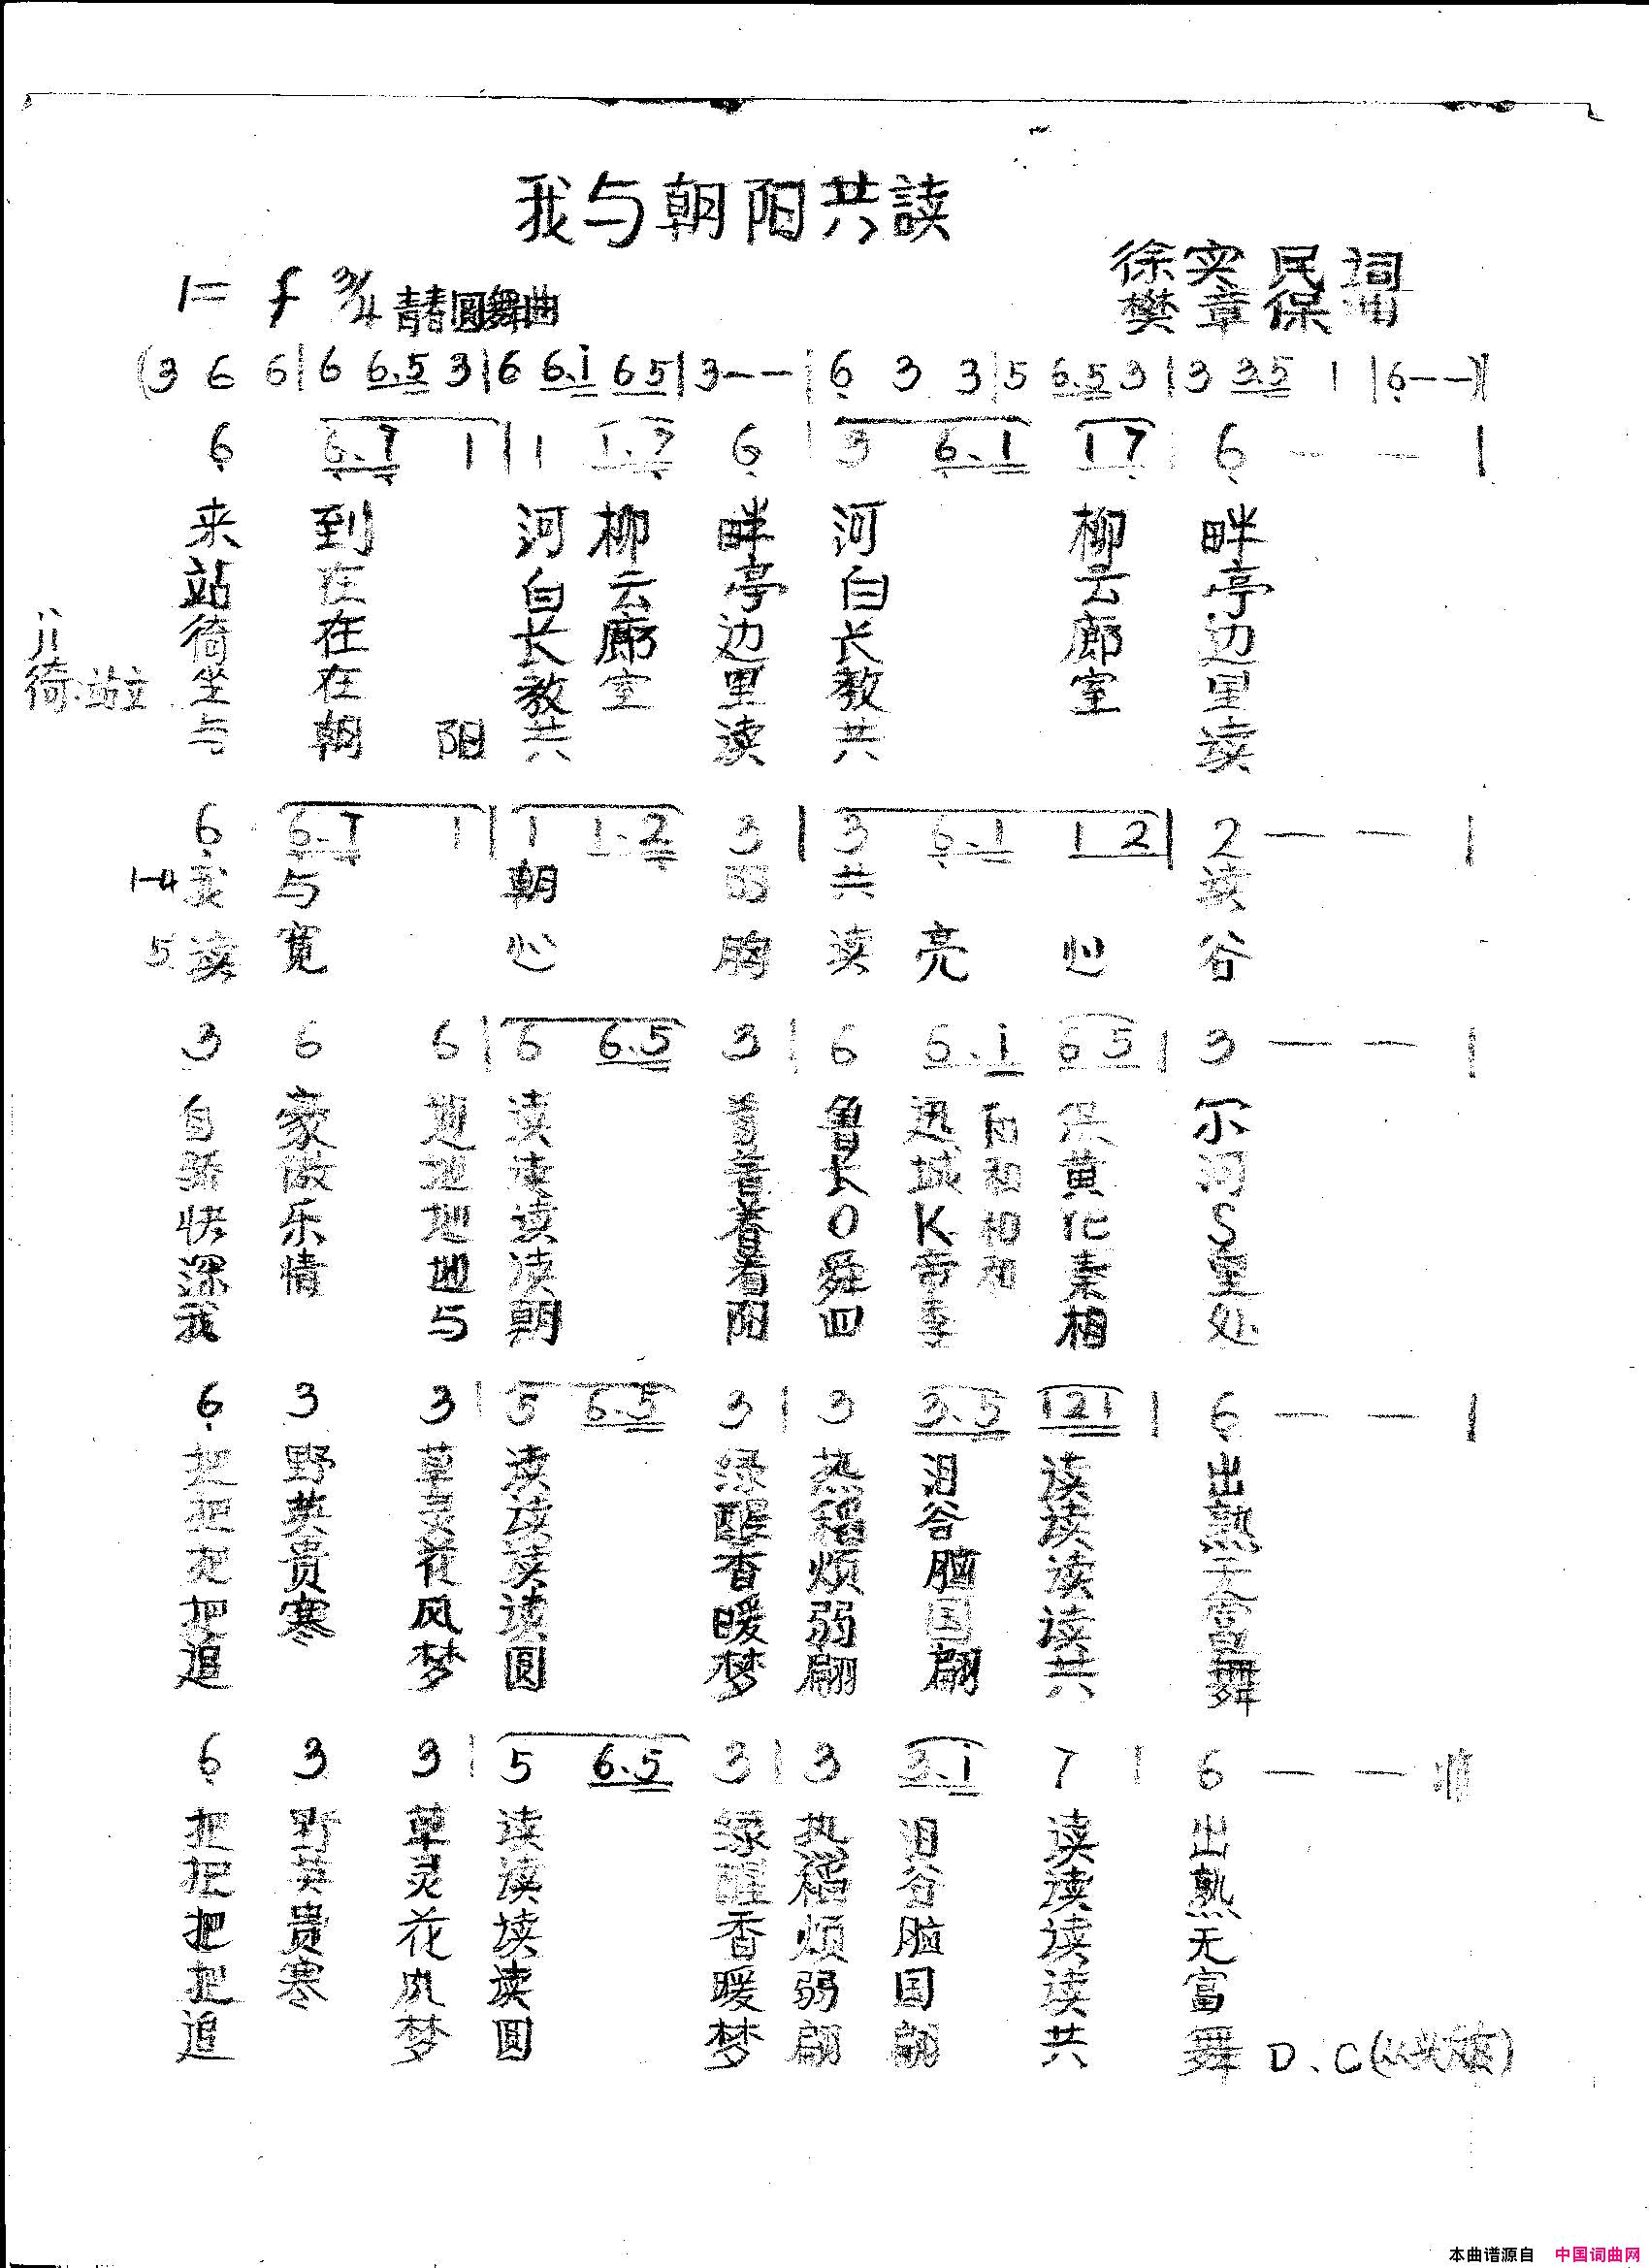 我与朝阳共読
徐实民词
1= f 3/4 圆舞曲
樊章保
(3 6 6|6 6.5 3|6 6.i 65|3--|6 3 3|5 6.5 3|3 3.5 1|6--)|
6 6.7 1|1 1.7 6|3 6.1 17|6 - - |
来 到 河 柳 畔 河 柳 畔
站 在 白 云 亭 白 云 亭
徛 在 长 廊 边 长 廊 边
坐 在 教 室 里 教 室 里
与 朝 阳 共 读 共 读
6 6.7 1|1 1.2 3|3 6.1 12|2 — — |
1-4 我 与 朝 阳 共 读
5 读 宽 心 胸 读 亮 心 谷
3 6 6|6 6.5 3|6 6.i 65|3 — — |
自 豪 地 读 着 鲁 迅 和 尔
骄 傲 地 读 着 长 城 和 黄 河
快 乐 地 读 着 O K 和 化 S
深 情 地 读 着 舜 帝 和 里
我 与 朝 阳 四 季 相 处
6 3 3|5 6.5 3|3 3.5 121|6 — — |
把 野 草 读 绿 热 泪 读 出
把 英 灵 读 醒 稻 谷 读 熟
把 贵 花 读 香 烦 脑 读 无
把 寒 风 读 暖 弱 国 读 富
追 梦 圆 梦 翩 翩 共 舞
6 3 3|5 6.5 3|3 3.i 7|6 — —
把 野 草 读 绿 热 泪 读 出
把 英 灵 读 醒 稻 谷 读 熟
把 贵 花 读 香 烦 脑 读 无
把 寒 风 读 暖 弱 国 读 富
追 梦 圆 梦 翩 翩 共 舞 D、C(从头
本曲谱源自 中国词曲网